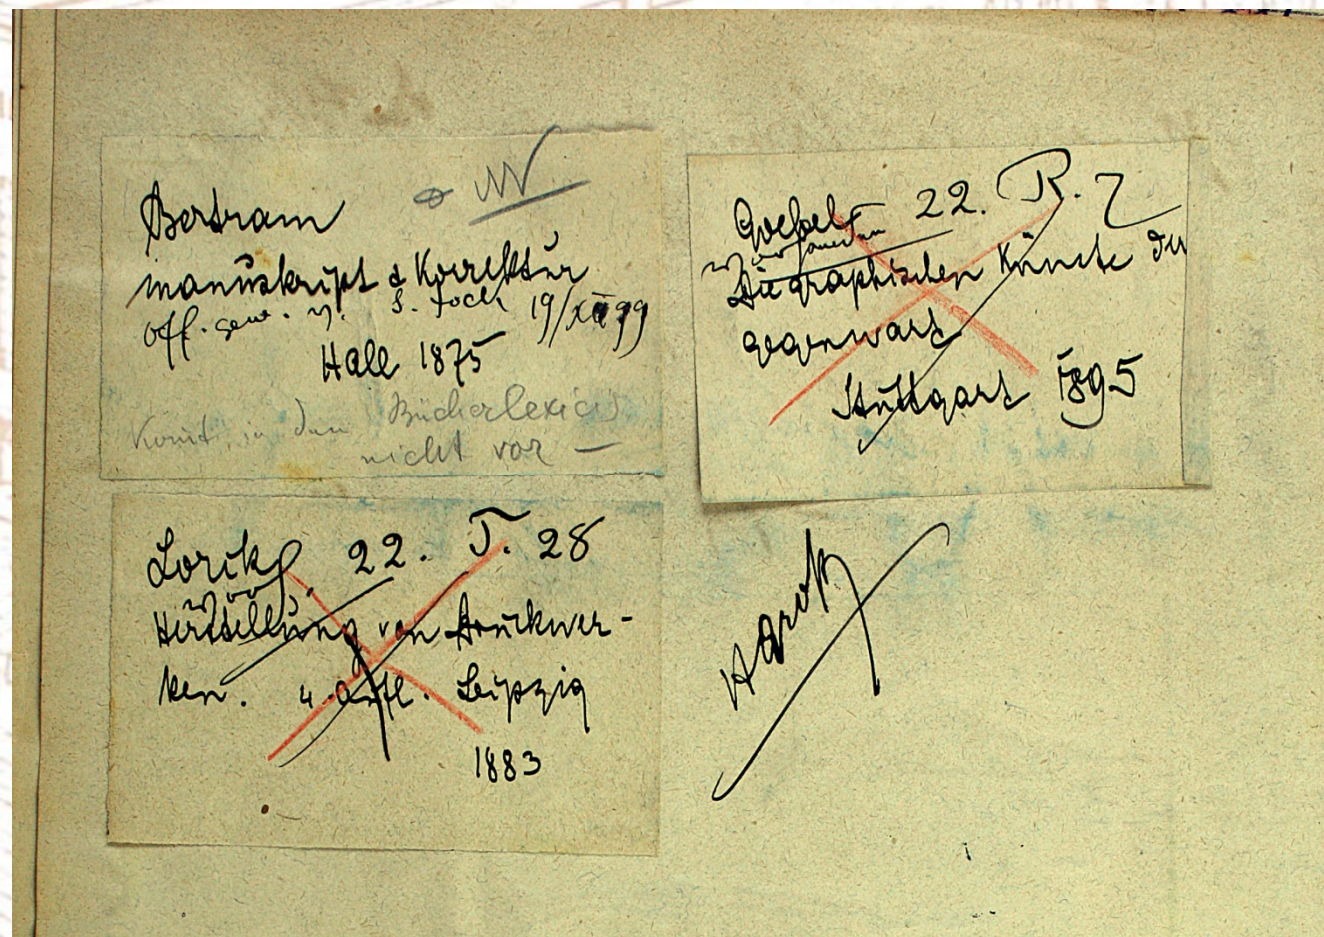 Bertram
manuskript & Korrektur
off. gew. v. S. Fock 19/XII 99
Halle 1875
Komt in den Bücherlexicis
nicht vor —
Goebel 22. R. 7
Die graphischen Künste der
gegenwart
Stuttgart 1895
Lorck 22. T. 28
Herstellung von Druckwer-
ken. 4. Aufl. Leipzig
1883